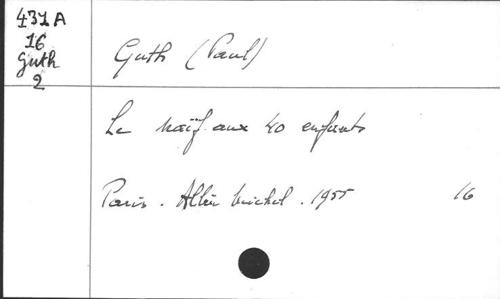 431A
16
Guth
2
Guth (Paul)
Le naïf aux 40 enfants
Paris. Albin Michel. 1955 16